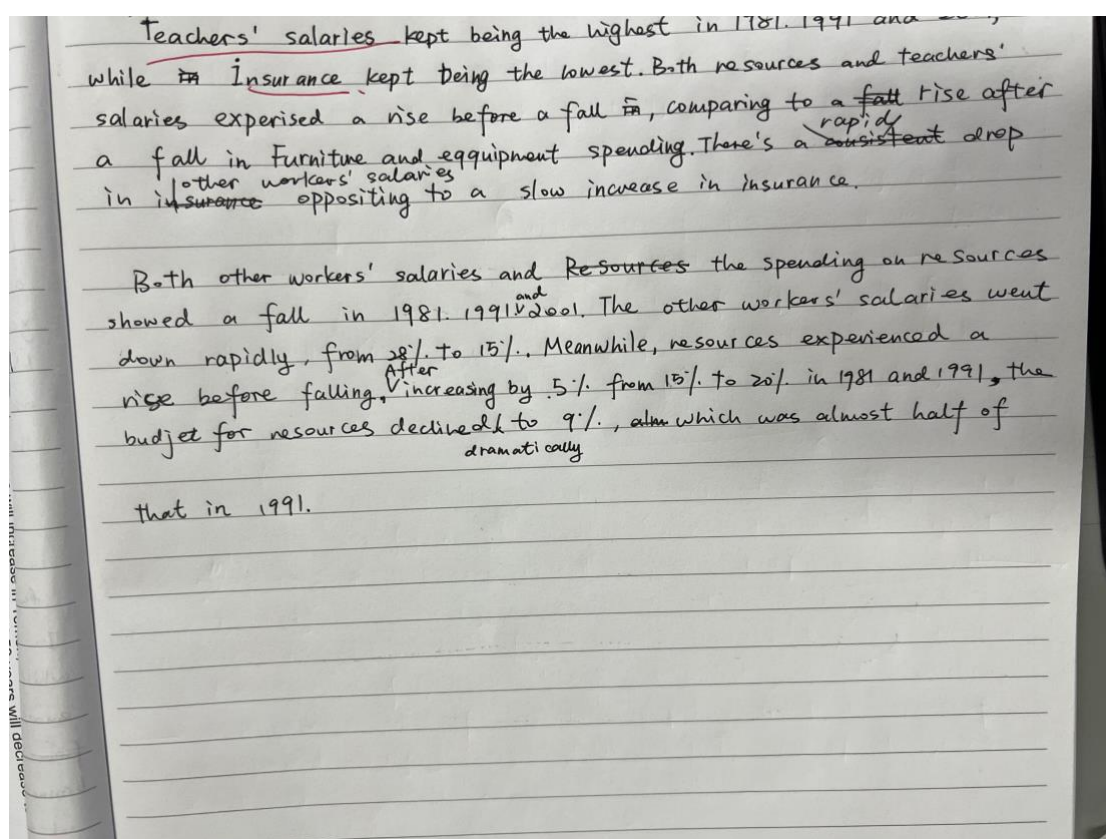 Teachers' salaries kept being the highest in 1981. 1991 and
while in Insurance kept being the lowest. Both resources and teachers'
salaries experised a rise before a fall in, comparing to a fall rise after
rapid
a fall in Furniture and eqquipment spending. There's a consistent drop
other workers' salaries
in insurance oppositing to a slow increase in insurance.
Both other workers' salaries and Resources the spending on resources
and
showed a fall in 1981. 1991 2001. The other workers' salaries went
down rapidly, from 28% to 15%. Meanwhile, resources experienced a
After
rise before falling, increasing by 5% from 15% to 20% in 1981 and 1991, the
budjet for resources declined to 9%, alm which was almost half of
dramatically
that in 1991.
will increase in
years will decrease